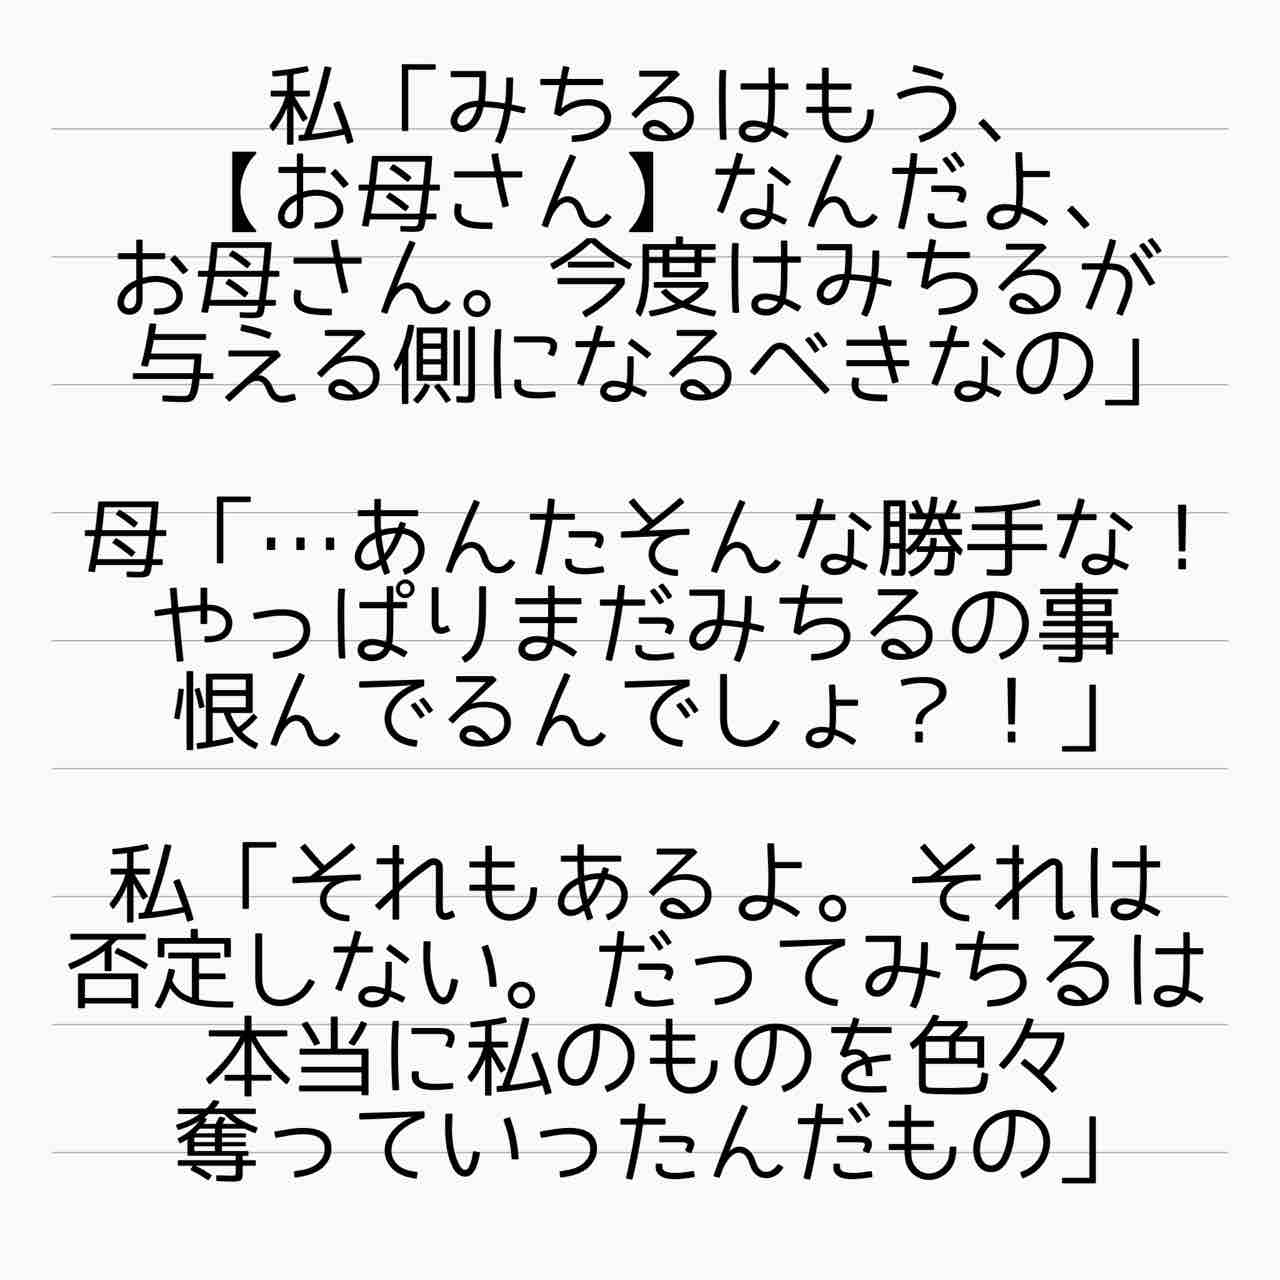 私「みちるはもう、
【お母さん】なんだよ、
お母さん。今度はみちるが
与える側になるべきなの」
母「…あんたそんな勝手な！
やっぱりまだみちるの事
恨んでるんでしょ？！」
私「それもあるよ。それは
否定しない。だってみちるは
本当に私のものを色々
奪っていったんだもの」